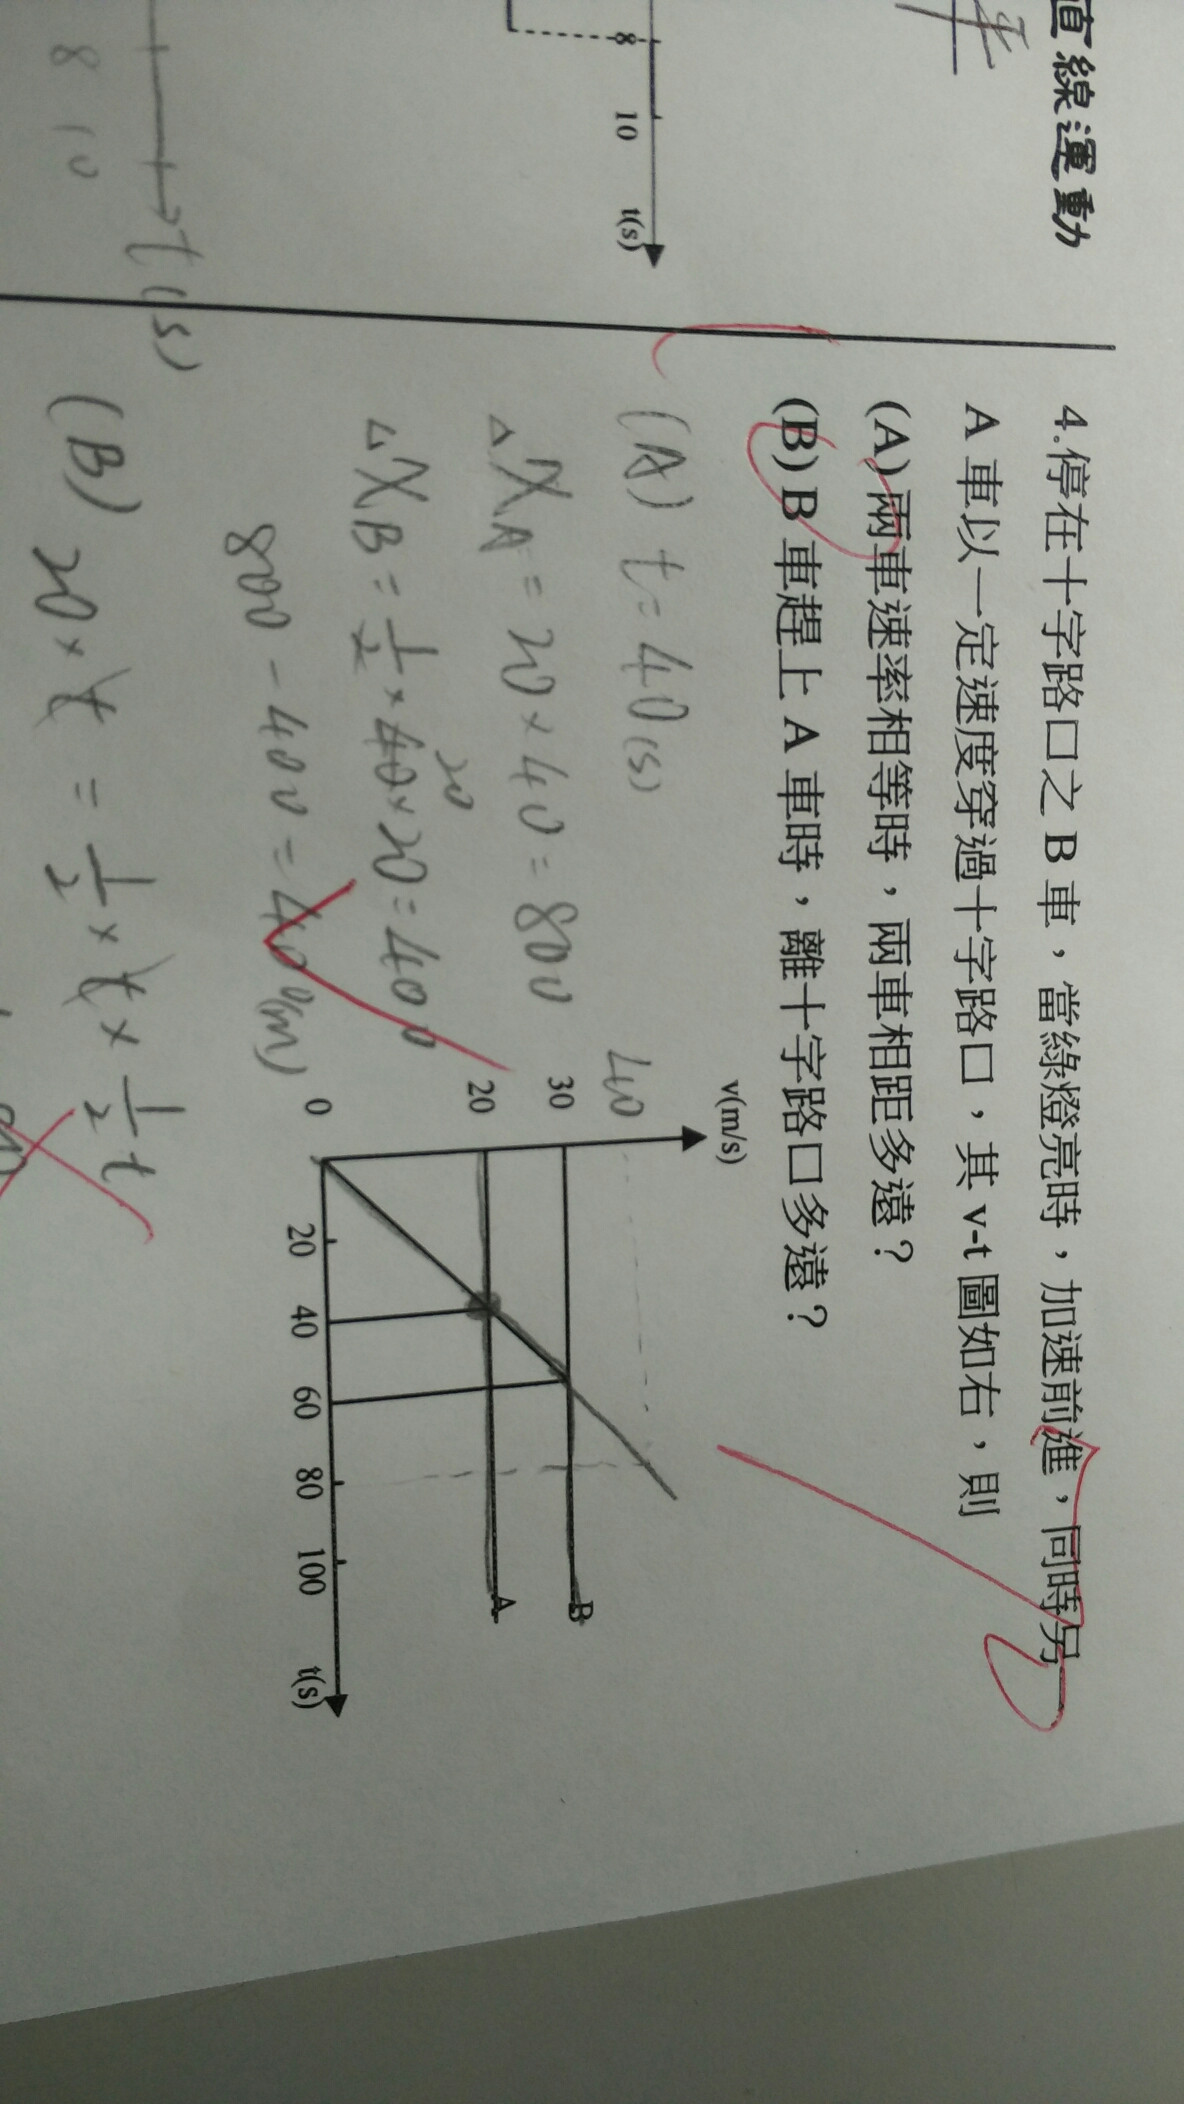 直線運動
8
10
t(s)
8 10
t(s)
4.停在十字路口之 B 車，當綠燈亮時，加速前進，同時另一
A 車以一定速度穿過十字路口，其 v-t 圖如右，則
(A)兩車速率相等時，兩車相距多遠？
(B) B 車趕上 A 車時，離十字路口多遠？
(A) t = 40(s)
△XA = 20 × 40 = 800
20
△XB = 1/2 × 40 × 20 = 400
800 - 400 = 400(m)
(B) 20 × t = 1/2 × t × 1/2 t
v(m/s)
40
30
20
0
B
A
20 40 60 80 100
t(s)